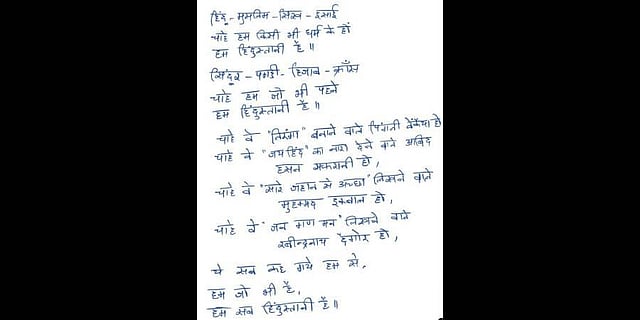 हिंदू - मुसलिम - सिख - इसाई
चाहे हम किसी भी धर्म के हों
हम हिंदुस्तानी हैं॥
सिंदूर - पगड़ी - हिजाब - क्रॉस
चाहे हम जो भी पहने
हम हिंदुस्तानी हैं॥
चाहे वे "तिरंगा" बनाने वाले पिंगली वेंकैया हो
चाहे वे "जय हिंद" का नारा देने वाले आबिद
हसन सफरानी हो,
चाहे वे "सारे जहान से अच्छा" लिखने वाले
मुहम्मद इक़बाल हो,
चाहे वे "जन गण मन" लिखने वाले
रवीन्द्रनाथ टैगोर हो,
ये सब कह गये हम से,
हम जो भी हैं,
हम सब हिंदुस्तानी हैं॥